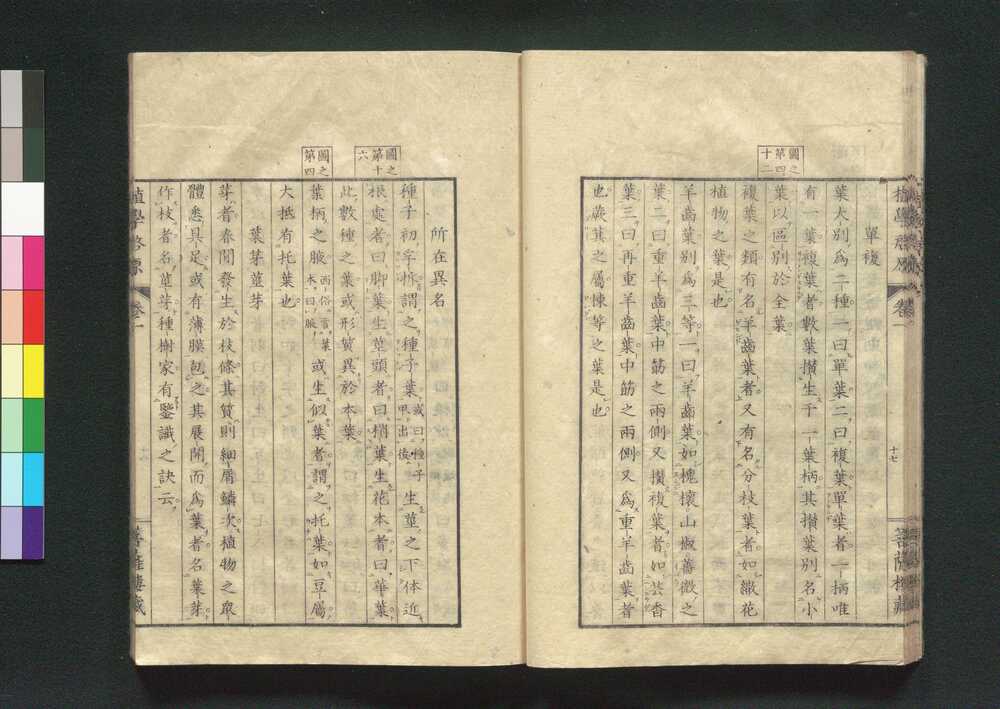 圖之
第四
十二
單複
葉大別爲二種一曰單葉二曰複葉單葉者一柄唯
有一葉複葉者數葉攅生于一葉柄其攅葉別名小
葉以區別於全葉
複葉之類有名羊齒葉者又有名分枝葉者如繖花
植物之葉是也
羊齒葉別爲三等一曰羊齒葉如槐懷山椒薔薇之
葉二曰重羊齒葉中筋之兩側又攅複葉者如芸香
葉三曰再重羊齒葉中筋之兩側又爲重羊齒葉者
也蕨萁之屬楝等之葉是也
卷一
十七
菩薩樓藏
圖之
第十
六
圖之
第四
所在異名
種子初孚拆謂之種子葉
或曰種子
甲出後
生莖之下体近
根處者曰脚葉生莖頭者曰梢葉生花本者曰華葉
此數種之葉或形質異於本葉
葉柄之腋
西俗言葉
本曰腋
或生似葉者謂之托葉如豆屬
大抵有托葉也
葉芽莖芽
芽者春間發生於枝條其質則細屑鱗次植物之眾
體悉具足或有薄膜包之其展開而爲葉者名葉芽
作枝者名莖芽種樹家有鑒識之訣云
植學啓原
卷一
菩薩樓藏